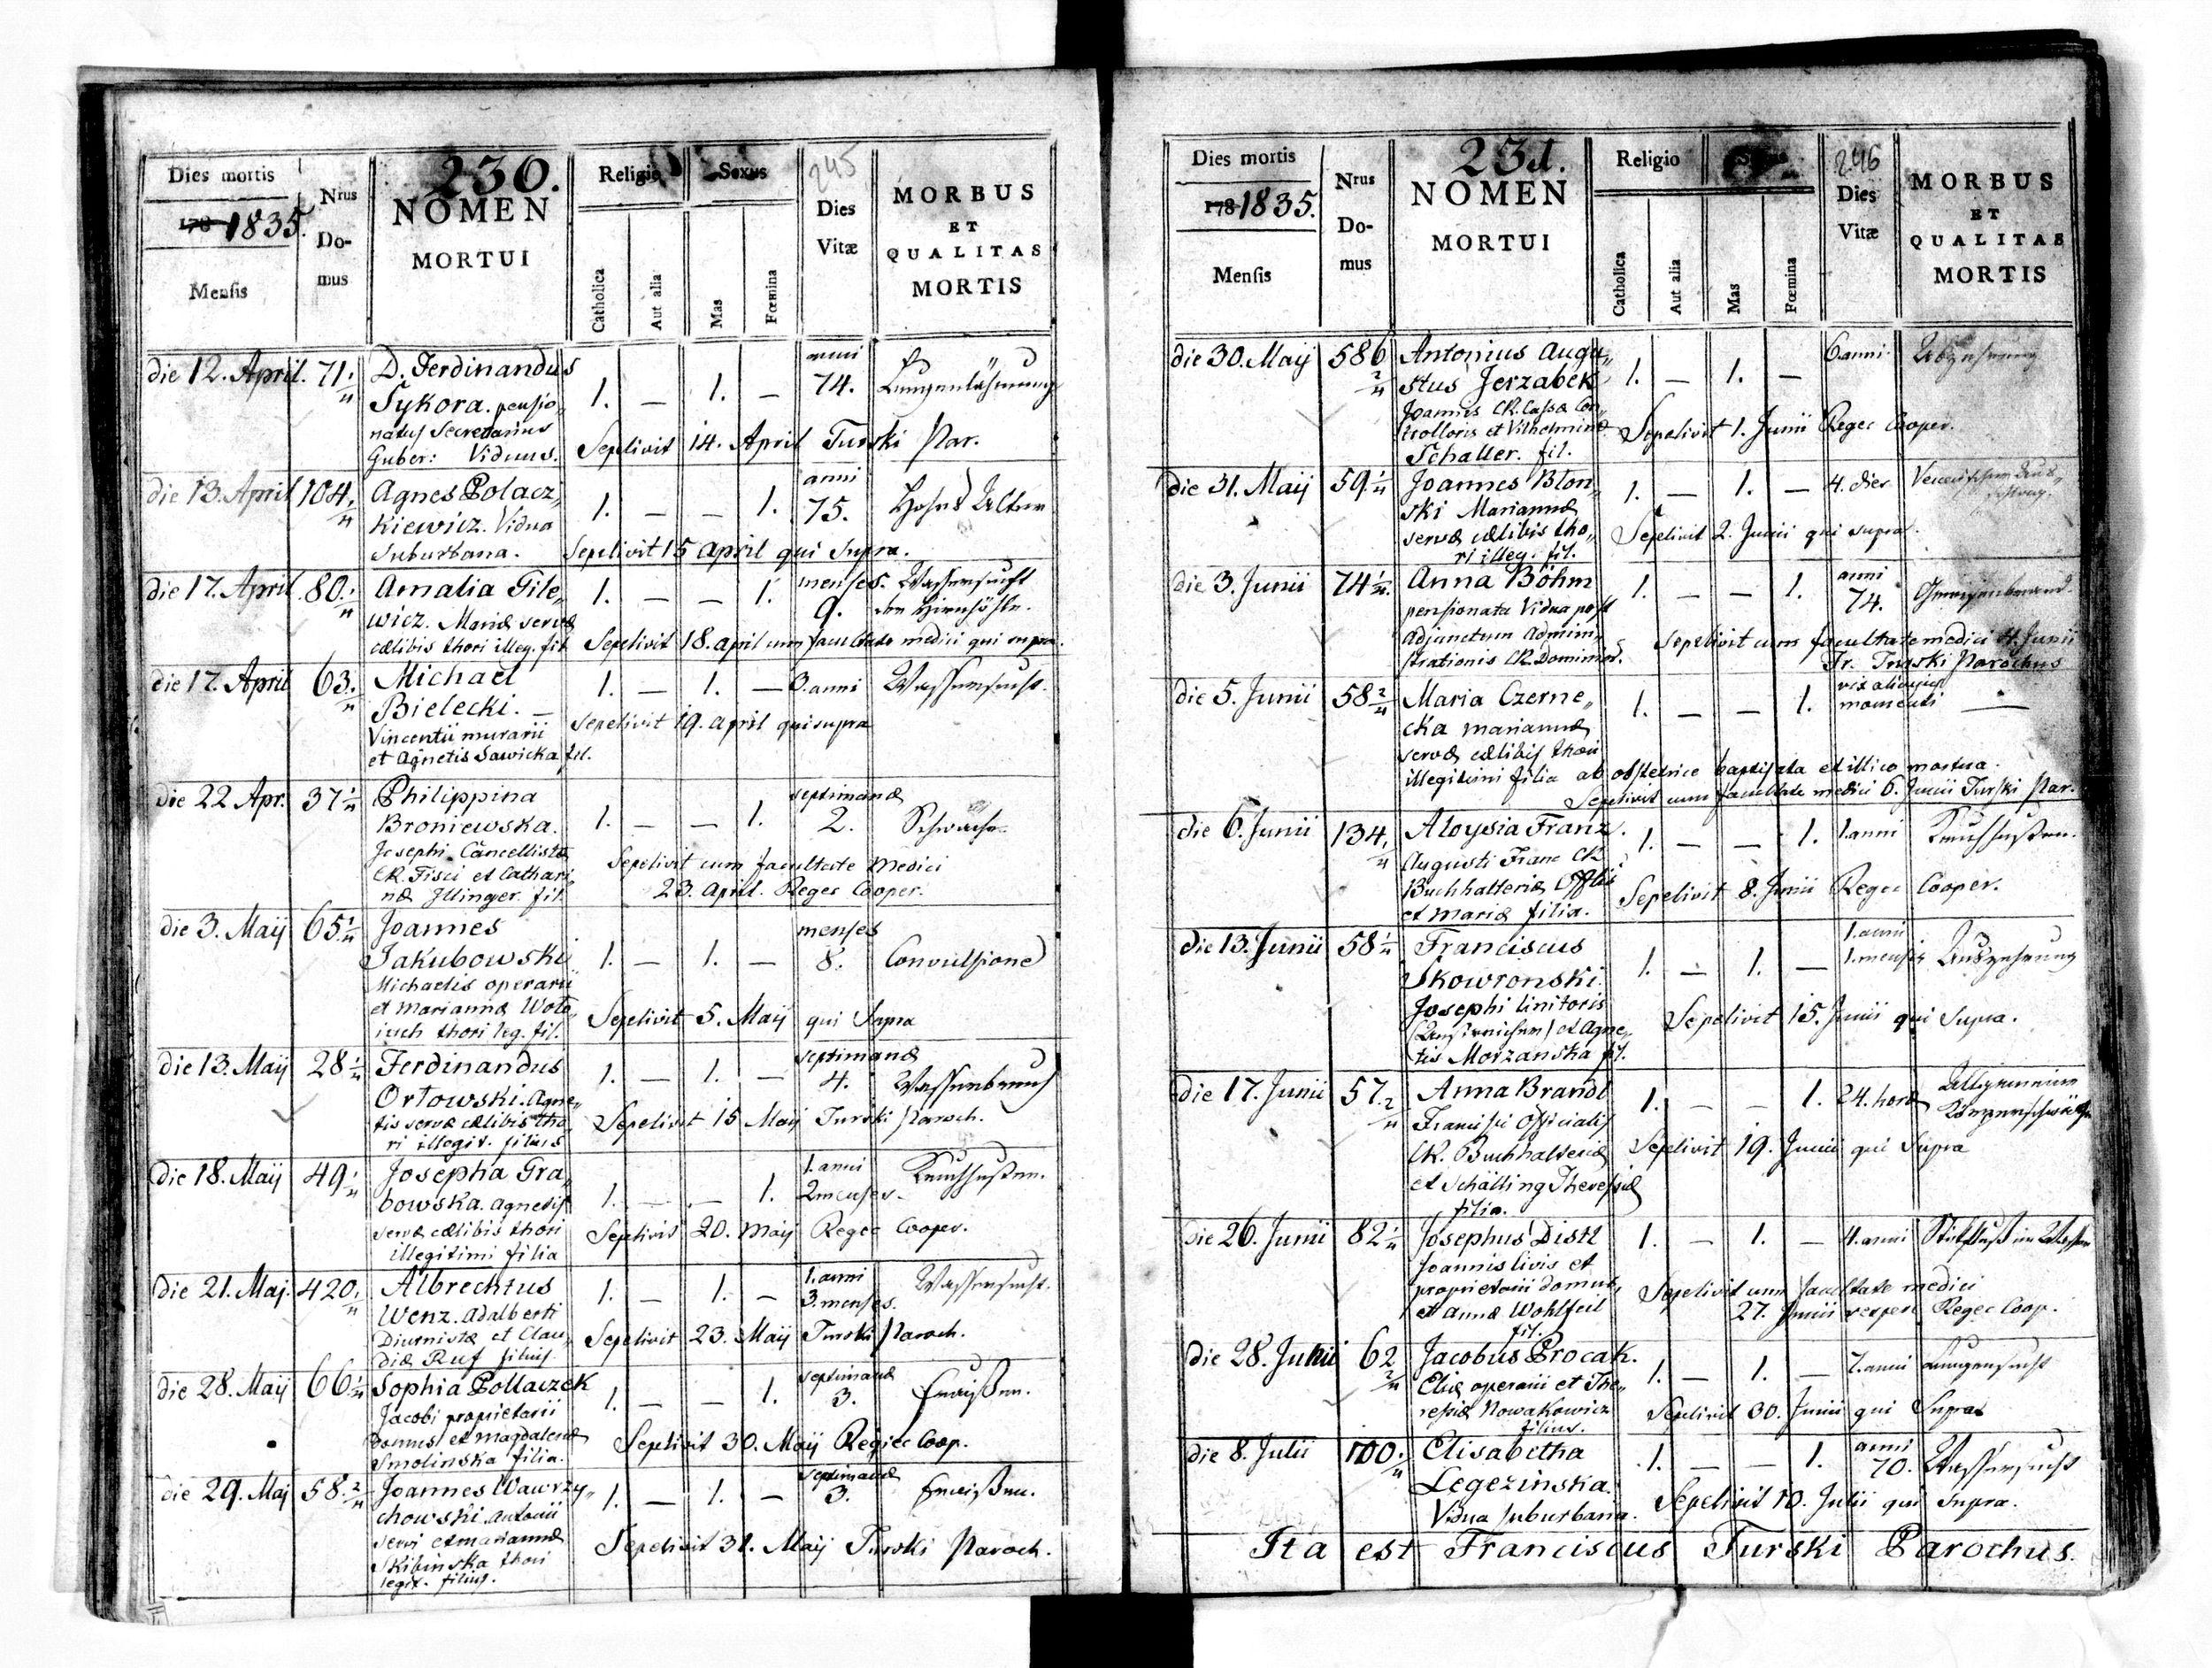 230.
245
Dies mortis
Nrus Domus
NOMEN MORTUI
Religio
Sexus
Dies Vitæ
MORBUS ET QUALITAS MORTIS
178 1835.
Mensis
Catholica
Aut alia
Mas
Fœmina
die 12. April. 71. 1/4 D. Ferdinandus 1. — 1. — anni 74. Lungenlähmung
Sykora. pensio„
natus Secretarius
Guber: Viduus. Sepelivit 14. April Turski Par.
die 13. April 104. 1/4 Agnes Polacz„ 1. — — 1. anni 75. Hohes Alter
kiewicz. Vidua
Suburbana. Sepelivit 15 April qui Supra.
die 17. April 80. 1/4 Amalia Gile„ 1. — — 1. menses. 9. Wassersucht
wicz. Mariæ servæ der Hirnhöhle.
cælibis thori illeg. fil. Sepelivit 18. April cum facultate medici qui supra.
die 17. April 63. 1/4 Michael 1. — 1. — 3. anni Wassersucht.
Bielecki. —
Vincentii murarii Sepelivit 19. April qui supra
et Agnetis Sawicka fil.
die 22 Apr. 37 1/4 Philippina 1. — — 1. septimanæ 2. Schwäche
Broniewska.
Josephi Cancellistæ Sepelivit cum facultate Medici
CR. Fisci et Cathari„ 23. April. Regec Cooper.
næ Illinger fil.
die 3. Maij 65 1/4 Joannes 1. — 1. — menses 8. Convulsione
Jakubowski
Michaelis operarii
et Mariannæ Woto„ Sepelivit 5. Maij qui Supra
iuch thori leg. fil.
die 13. Maij 28 1/4 Ferdinandus 1. — 1. — septimanæ 4. Wasserbruch
Ortowski. Agne„
tis servæ cælibis tho„ Sepelivit 15 Maij Turski Paroch.
ri illegit. filius
die 18. Maij 49 1/4 Josepha Gra„ 1. — — 1. 1. anni 2 menses. Keuchhusten.
bowska. Agnetis
servæ cælibis thori Sepelivit 20. Maij Regec Cooper.
illegitimi filia
die 21. Maj. 420. 1/4 Albrechtus 1. — 1. — 1. anni 3. menses. Wassersucht.
Wenz. Adalberti
Diurnistæ et Clau„ Sepelivit 23. Maij Turski Paroch.
diæ Ruf filius.
die 28. Maij 66 1/4 Sophia Pollaczek 1. — — 1. septimanæ 3. Fraißen.
Jacobi proprietarii
Domus et Magdalenæ Sepelivit 30. Maij Regec Coop.
Smolinska filia.
die 29. Maj 58. 2/4 Joannes Wawrzy„ 1. — 1. — septimanæ 3. Fraißen.
chowski. Antonii
servi et mariannæ Sepelivit 31. Maij Turski Paroch.
Skibinska thori
legit. filius.
231.
246
Dies mortis
Nrus Domus
NOMEN MORTUI
Religio
Dies Vitæ
MORBUS ET QUALITAS MORTIS
178 1835.
Mensis
Catholica
Aut alia
Mas
Fœmina
die 30. Maij 586 2/4 Antonius Augu„ 1. — 1. — 6 anni Abzehrung
stus Jerzabek
Joannis CR. Cassæ Con„
trolloris et Vilhelminæ Sepelivit 1. Junii Regec Cooper.
Schaller. fil.
die 31. Maij 59. 1/4 Joannes Blon„ 1. — 1. — 4. dies
ski Mariannæ
servæ cælibis tho„ Sepelivit 2. Junii qui supra.
ri illeg. fil.
die 3. Junii 74 1/4 Anna Böhm 1. — — 1. anni 74.
pensionata Vidua post
Adjunctum Admini„ Sepelivit cum facultate medici 4. Junii
strationis CR. Dominior. Fr. Turski Parochus
die 5. Junii 58 2/4 Maria Czerne„ 1. — — 1. vix alicujus momenti —
cka mariannæ
servæ cælibis thori
illegitimi filia ab obstetrice baptisata et illico mortua.
Sepelivit cum facultate medici 6. Junii Turski Par.
die 6. Junii 134. 1/4 Aloysia Franz. 1. — — 1. 1. anni Keuchhusten.
Augusti Franz CR
Buchhalteriæ Offlis Sepelivit 8. Junii Regec Cooper.
et Mariæ filia.
die 13. Junii 58 1/4 Franciscus 1. — 1. — 1. anni 1. mensis Auszehrung
Skowronski.
Josephi linitoris
et Agne„ Sepelivit 15. Junii qui Supra.
tis Morzanska fil.
die 17. Junii 57. 2/4 Anna Brandl 1. — — 1. 24. horæ Allgemeine
Francisci Officialis Körperschwäche
CR. Buchhalteriæ Sepelivit 19. Junii qui Supra
et Schälling Theresiæ
filia.
die 26. Junii 82 1/4 Josephus Diskl 1. — 1. — 4. anni Stickfluß im
Joannis civis et
proprietarii domus, Sepelivit cum facultate medici
et Annæ Wohlfeil 27. Junii vesperi Regec Coop.
fil.
die 28. Junii 62 2/4 Jacobus Procak. 1. — 1. — 7. anni Lungensucht
Eliæ operarii et The„
resiæ Nowakowicz Sepelivit 30. Junii qui Supra
filius.
die 8. Julii 100. 1/4 Elisabetha 1. — — 1. anni 70. Wassersucht
Legezinska.
Vidua suburbana. Sepelivit 10. Julii qui Supra.
Ita est Franciscus Turski Parochus.